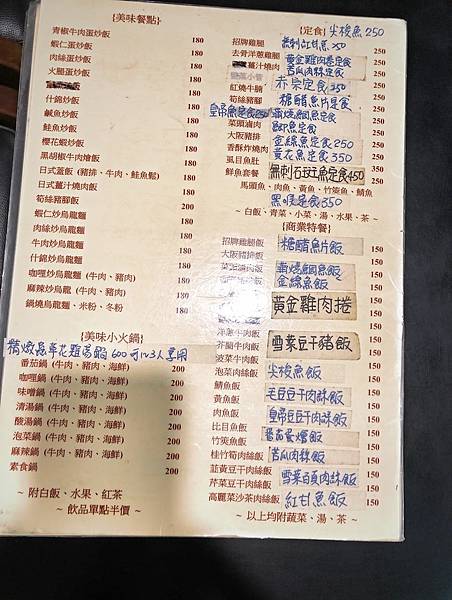 {美味餐點}
青椒牛肉蛋炒飯 180
蝦仁蛋炒飯 180
肉絲蛋炒飯 180
火腿蛋炒飯 180
什錦炒飯 180
鹹魚炒飯 180
鮭魚炒飯 180
櫻花蝦炒飯 180
黑胡椒牛肉燴飯 180
日式蓋飯 (豬排、牛肉、鮭魚鬆) 180
日式薑汁燒肉飯 180
筍絲豬腳飯 200
蝦仁炒烏龍麵 180
肉絲炒烏龍麵 180
牛肉炒烏龍麵 180
什錦炒烏龍麵 180
咖哩炒烏龍 (牛肉、豬肉) 180
麻辣炒烏龍 (牛肉、豬肉) 180
鍋燒烏龍麵、米粉、冬粉 180
{美味小火鍋}
600 可1~3人享用
番茄鍋 (牛肉、豬肉、海鮮) 200
咖哩鍋 (牛肉、豬肉、海鮮) 200
味噌鍋 (牛肉、豬肉、海鮮) 200
清湯鍋 (牛肉、豬肉、海鮮) 200
酸湯鍋 (牛肉、豬肉、海鮮) 200
泡菜鍋 (牛肉、豬肉、海鮮) 200
麻辣鍋 (牛肉、豬肉、海鮮) 200
素食鍋 200
~ 附白飯、水果、紅茶 ~
~ 飲品單點半價 ~
{定食} 尖梭魚 250
招牌雞腿 無刺紅甘魚 350 250
去骨洋蔥雞腿 黃金雞肉捲定食 250
薑汁燒肉 苦瓜肉絲定食 250
紅燒牛腩 赤宗定食 350 250
筍絲豬腳 糖醋魚片定食 250
皇帝魚定食250 鯛魚定食 250
菜頭滷肉 定食 250
大阪豬排 金線魚定食250 250
香酥炸燒肉 黃花魚定食350 250
虱目魚肚 250
鮮魚套餐 無刺石斑魚定食450 250
馬頭魚、肉魚、黃魚、竹筴魚、鯖魚
黑喉定食350
~ 白飯、青菜、小菜、湯、水果、茶 ~
{商業特餐}
招牌雞腿飯 糖醋魚片飯 150
大阪豬排飯 150
菜頭滷肉飯 鯛魚飯 150
金線魚飯 150
黃金雞肉捲 150
洋蔥牛肉飯 150
芥蘭牛肉飯 雪菜豆干豬飯 150
菠菜牛肉飯 150
泡菜肉絲飯 尖梭魚飯 150
鯖魚飯 毛豆豆干肉絲飯 150
黃魚飯 150
肉魚飯 皇帝豆豆干肉絲飯 150
比目魚飯 150
竹筴魚飯 番茄蛋燴飯 150
桂竹筍肉絲飯 苦瓜肉絲飯 150
韮黃豆干肉絲飯 雪菜百頁肉絲飯 150
芹菜豆干肉絲飯 150
高麗菜沙茶肉絲飯 紅甘魚飯 150
~ 以上均附蔬菜、湯、茶 ~